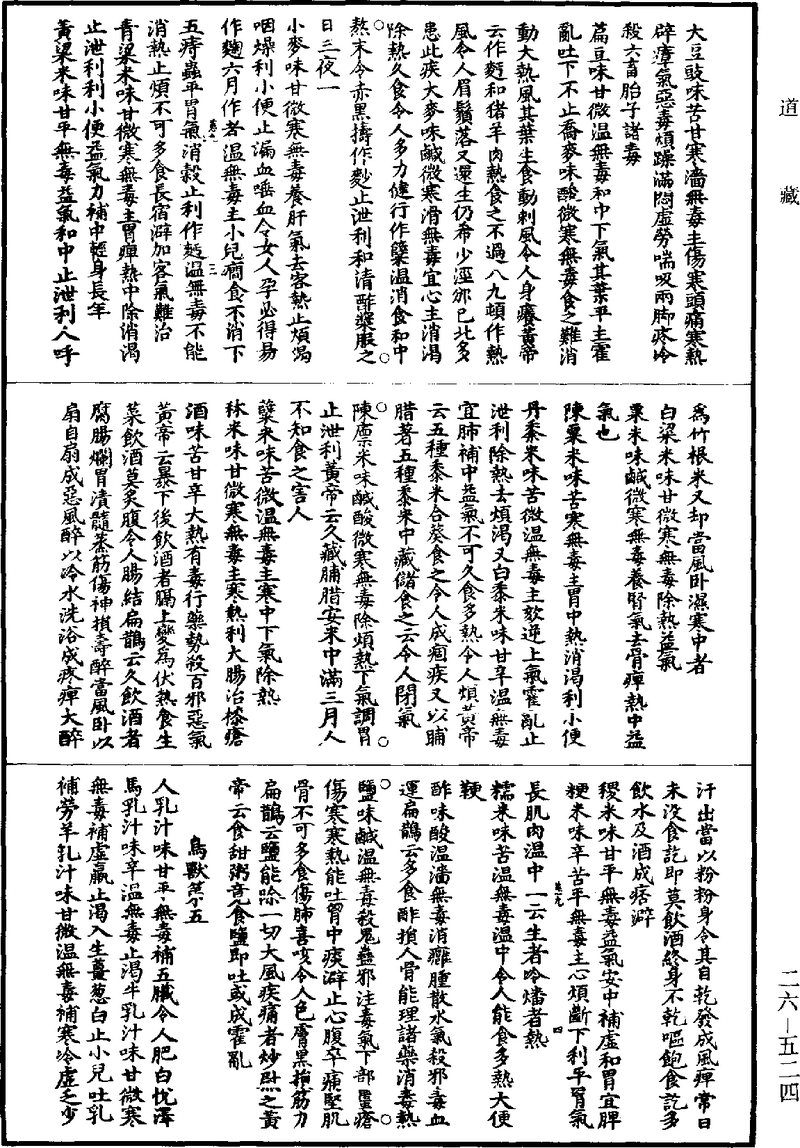 道藏
大豆豉味苦甘寒濇無毒主傷寒頭痛寒熱
辟瘴氣惡毒煩躁滿悶虛勞喘吸兩脚疼冷
殺六畜胎子諸毒
藊豆味甘微溫無毒和中下氣其葉平主霍
亂吐下不止蕎麥味酸微寒無毒食之難消
動大熱風其葉生食動刺風令人身癢黃帝
云作麪和猪羊肉熱食之不過八九頓作熱
風令人眉鬚落又還生仍希少涇邠已北多
患此疾大麥味鹹微寒滑無毒宜心主消渴
除熱久食令人多力健行作糵溫消食和中
熬末令赤黑擣作麨止泄利和清酢漿服之
日三夜一
小麥味甘微寒無毒養肝氣去客熱止煩渴
咽燥利小便止漏血唾血令女人孕必得易
作麴六月作者溫無毒主小兒癎食不消下
五痔蟲平胃氣消穀止利作麪溫無毒不能
消熱止煩不可多食長宿澼加客氣難治
青粱米味甘微寒無毒主胃痺熱中除消渴
止泄利利小便益氣力補中輕身長年
黃粱米味甘平無毒益氣和中止泄利人呼
爲竹根米又却當風卧濕寒中者
白粱米味甘微寒無毒除熱益氣
粟米味鹹微寒無毒養腎氣去骨痺熱中益
氣也
陳粟米味苦寒無毒主胃中熱消渴利小便
丹黍米味苦微溫無毒主欬逆上氣霍亂止
泄利除熱去煩渴又白黍米味甘辛溫無毒
宜肺補中益氣不可久食多熱令人煩黃帝
云五種黍米合葵食之令人成痼疾又以脯
腊著五種黍米中藏儲食之云令人閉氣
陳廪米味鹹酸微寒無毒除煩熱下氣調胃
止泄利黃帝云久藏脯腊安米中滿三月人
不知食之害人
糵米味苦微溫無毒主寒中下氣除熱
秫米味甘微寒無毒主寒熱利大腸治漆瘡
酒味苦甘辛大熱有毒行藥勢殺百邪惡氣
黃帝云暴下後飲酒者膈上變爲伏熱食生
菜飲酒莫炙腹令人腸結扁鵲云久飲酒者
腐腸爛胃潰髓蒸筋傷神損壽醉當風卧以
扇自扇成惡風醉以冷水洗浴成疼痺大醉
汗出當以粉粉身令其自乾發成風痺常日
未没食訖即莫飲酒終身不乾嘔飽食訖多
飲水及酒成痞澼
稷米味甘平無毒益氣安中補虛和胃宜脾
粳米味辛苦平無毒主心煩斷下利平胃氣
長肌肉溫中一云生者冷燔者熱
糯米味苦溫無毒溫中令人能食多熱大便
鞕
酢味酸溫濇無毒消癰腫散水氣殺邪毒血
運扁鵲云多食酢損人骨能理諸藥消毒熱
鹽味鹹溫無毒殺鬼蠱邪注毒氣下部䘌瘡
傷寒寒熱能吐胃中痰澼止心腹卒痛堅肌
骨不可多食傷肺喜咳令人色膚黑損筋力
扁鵲云鹽能除一切大風疾痛者炒熨之黃
帝云食甜粥竟食鹽即吐或成霍亂
鳥獸第五
人乳汁味甘平無毒補五臟令人肥白悅澤
馬乳汁味辛溫無毒止渴牛乳汁味甘微寒
無毒補虛羸止渴入生薑葱白止小兒吐乳
補勞羊乳汁味甘微溫無毒補寒冷虛乏少
二六—五二四